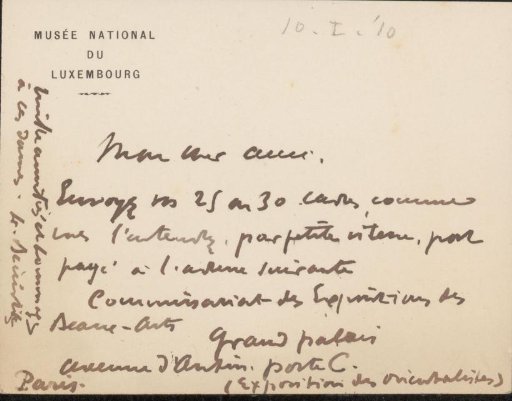 MUSÉE NATIONAL
DU
LUXEMBOURG
10. I. '10
Mon cher ami.
Envoyez vos 25 ou 30 cadres, comme
vous l'entendez, par petite vitesse, port
payé à l'adresse suivante
Commissariat des Expositions des
Beaux-Arts
Grand palais
avenue d'Antin. porte C.
Paris.
(Exposition des orientalistes)
Mille amitiés et hommages
à ces dames.
L. Bénédite